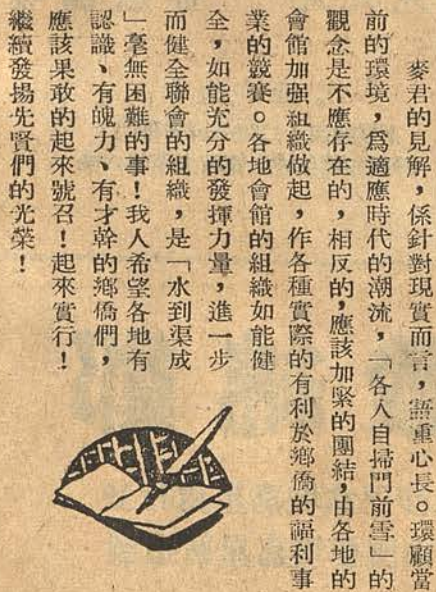 麥君的見解，係針對現實而言，語重心長。環顧當
前的環境，爲適應時代的潮流，「各人自掃門前雪」的
觀念是不應存在的，相反的，應該加緊的團結，由各地的
會館加强組織做起，作各種實際的有利於鄉僑的福利事
業的競賽。各地會館的組織如能健
全，如能充分的發揮力量，進一步
而健全聯會的組織，是「水到渠成
」毫無困難的事！我人希望各地有
認識、有魄力、有才幹的鄉僑們，
應該果敢的起來號召！起來實行！
繼續發揚先賢們的光榮！